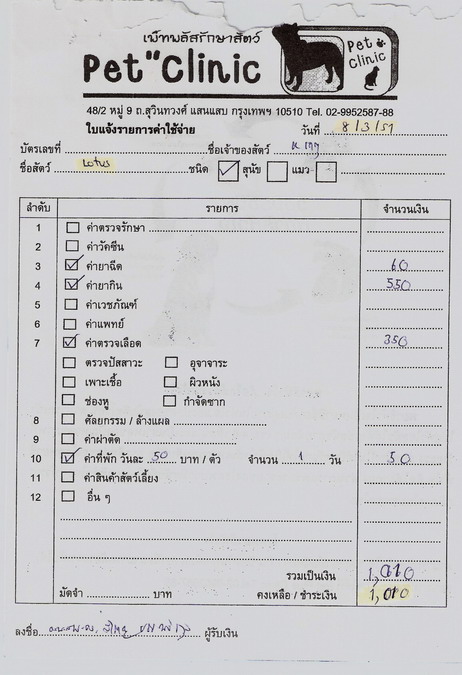 เพ็ทพลัสรักษาสัตว์
Pet" Clinic
Pet Clinic
48/2 หมู่ 9 ถ.สุวินทวงศ์ แสนแสบ กรุงเทพฯ 10510 Tel. 02-9952587-88
ใบแจ้งรายการค่าใช้จ่าย วันที่ 8/3/51
บัตรเลขที่ ชื่อเจ้าของสัตว์
ชื่อสัตว์ Lotus ชนิด สุนัข แมว
ลำดับ รายการ จำนวนเงิน
1 ค่าตรวจรักษา
2 ค่าวัคซีน
3 ค่ายาฉีด 60
4 ค่ายากิน 550
5 ค่าเวชภัณฑ์
6 ค่าแพทย์
7 ค่าตรวจเลือด 350
ตรวจปัสสาวะ อุจาจาระ
เพาะเชื้อ ผิวหนัง
ช่องหู กำจัดซาก
8 ศัลยกรรม / ล้างแผล
9 ค่าผ่าตัด
10 ค่าที่พัก วันละ 50 บาท / ตัว จำนวน 1 วัน 50
11 ค่าสินค้าสัตว์เลี้ยง
12 อื่น ๆ
รวมเป็นเงิน 1,010
มัดจำ บาท คงเหลือ / ชำระเงิน 1,010
ลงชื่อ ผู้รับเงิน